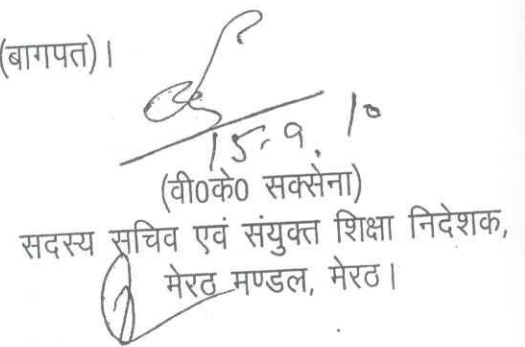 (बागपत)।
15.9.10
(वी0के0 सक्सेना)
सदस्य सचिव एवं संयुक्त शिक्षा निदेशक,
मेरठ मण्डल, मेरठ।